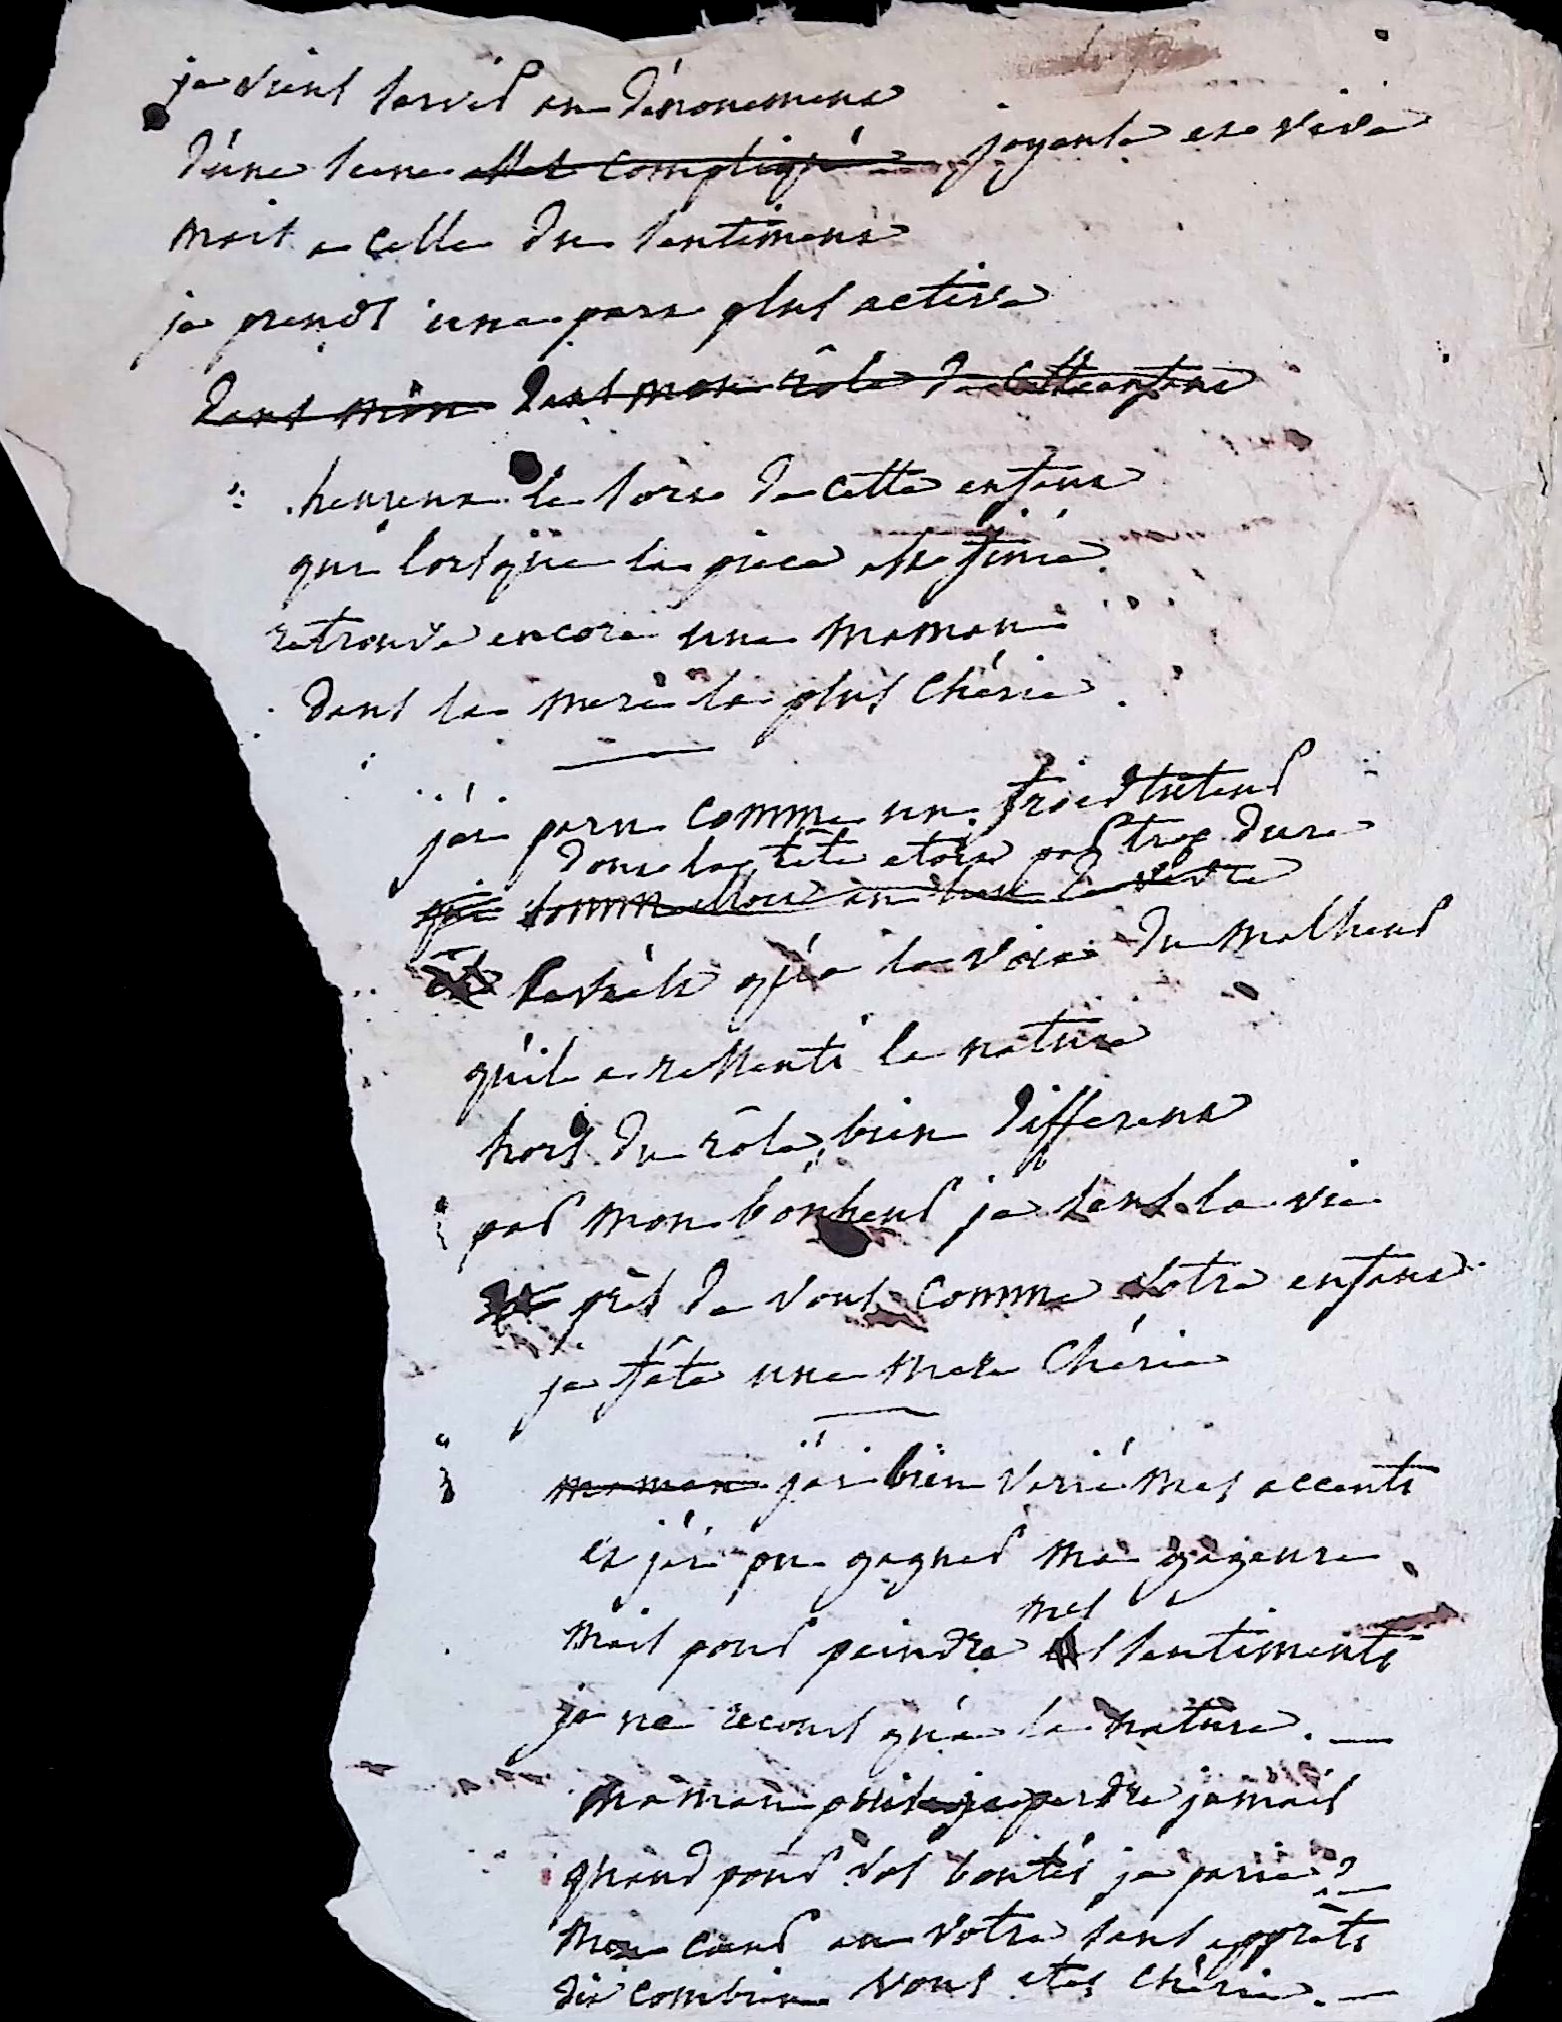 je viens servir au dénouement
d'une scene assés compliquée joyeuse et vive
mais a celle du sentiment
je prends une part plus active
dans mon dans mon rôle de cette enfant
heureux le sort de cette enfant
qui lorsque la piece est finie
retrouve encore une maman
dans la mere la plus chérie.
j'ai paru comme un froid tuteur
dont la tête etoit pas trop dure
qui
ce n'est qu'a la voix du malheur
qu'il a ressenti la nature
hors du rôle, bien different
par mon bonheur je sens la vie
près de vous comme votre enfant
je fête une mere chérie
maman j'ai bien varié mes accents
et j'ai pu gagner ma gageure
mais pour peindre mes sentiments
je ne recours qu'a la nature.
maman puis-je perdre jamais
quand pour vos bontés je parie?
mon cœur au votre sans apprêts
dit combien vous etes chérie.